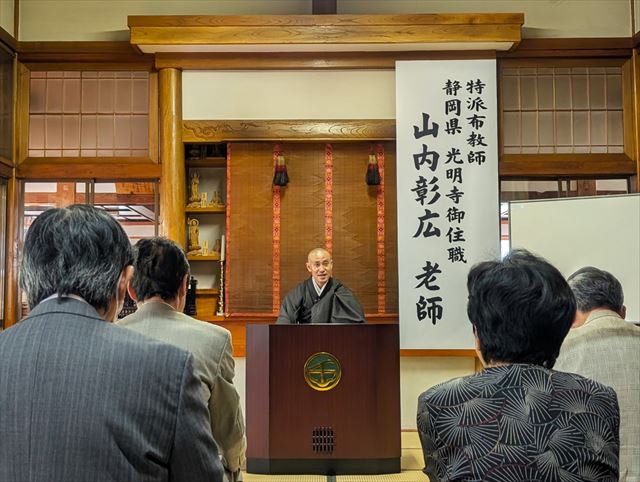 特派布教師
静岡県 光明寺御住職
山内彰広 老師